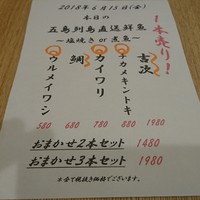 2018年6月15日(金)
本日の
五島列島直送鮮魚
〜塩焼き or 煮魚〜
1本売り!
吉次
チカメキントキ
カイワリ
鯛
ウルメイワシ
580 680 780 880 1980
おまかせ2本セット 1480
おまかせ3本セット 1980
※全て税抜き価格でございます。